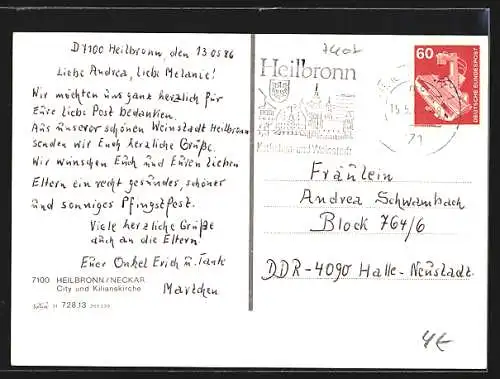 D7100 Heilbronn, den 13.05.86
Liebe Andrea, liebe Melanie!
Wir möchten uns ganz herzlich für
Eure liebe Post bedanken.
Aus unserer schönen Weinstadt Heilbronn
senden wir Euch herzliche Grüße.
Wir wünschen Euch und Euren lieben
Eltern ein recht gesundes, schönes
und sonniges Pfingstfest.
Viele herzliche Grüße
auch an die Eltern
Euer Onkel Erich u. Tante
Martchen
7100 HEILBRONN/NECKAR
City und Kilianskirche
728.13
Heilbronn
Käthchen- und Weinstadt
71
60
DEUTSCHE BUNDESPOST
Fräulein
Andrea Schwambach
Block 764/6
DDR-4090 Halle-Neustadt
4€